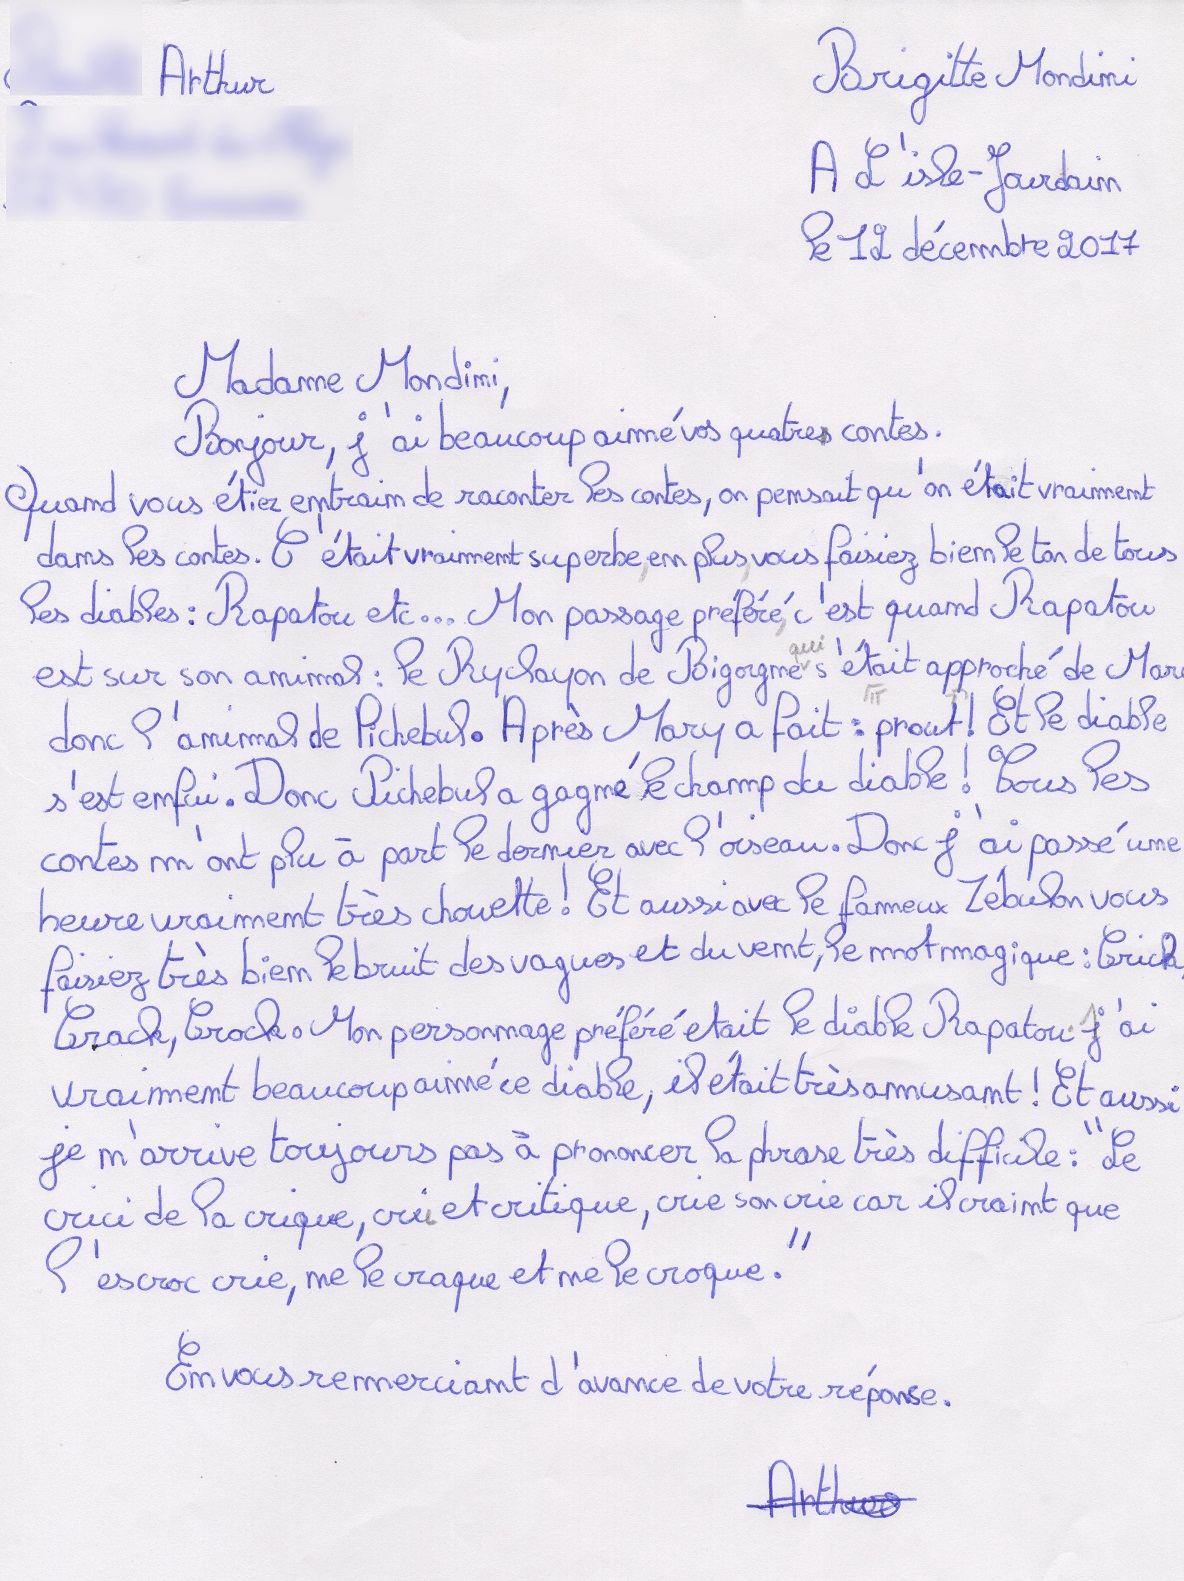 Arthur
Brigitte Mondini
A L'isle-Jourdain
le 12 décembre 2017
Madame Mondini,
Bonjour, j'ai beaucoup aimé vos quatres contes.
Quand vous étiez entrain de raconter les contes, on pensait qu'on était vraiment
dans les contes. C'était vraiment superbe, en plus, vous faisiez bien le ton de tous
les diables : Rapatou etc... Mon passage préféré, c'est quand Rapatou
qui
est sur son animal : le Ryclayon de Bigorgne s'était approché de Mary
donc l'animal de Pichebul. Après Mary a fait : prout ! Et le diable
s'est enfui. Donc Pichebul a gagné le champ du diable ! Tous les
contes m'ont plu à part le dernier avec l'oiseau. Donc j'ai passé une
heure vraiment très chouette ! Et aussi avec le fameux Zébulon vous
faisiez très bien le bruit des vagues et du vent, le mot magique : Crick,
Crack, Crock. Mon personnage préféré etait le diable Rapatou. j'ai
vraiment beaucoup aimé ce diable, il était très amusant ! Et aussi
je m'arrive toujours pas à prononcer la phrase très difficile : "Le
crici de la crique, crii et critique, crie son crie car il craint que
l'escroc crie, ne le craque et ne le croque."
En vous remerciant d'avance de votre réponse.
Arthur